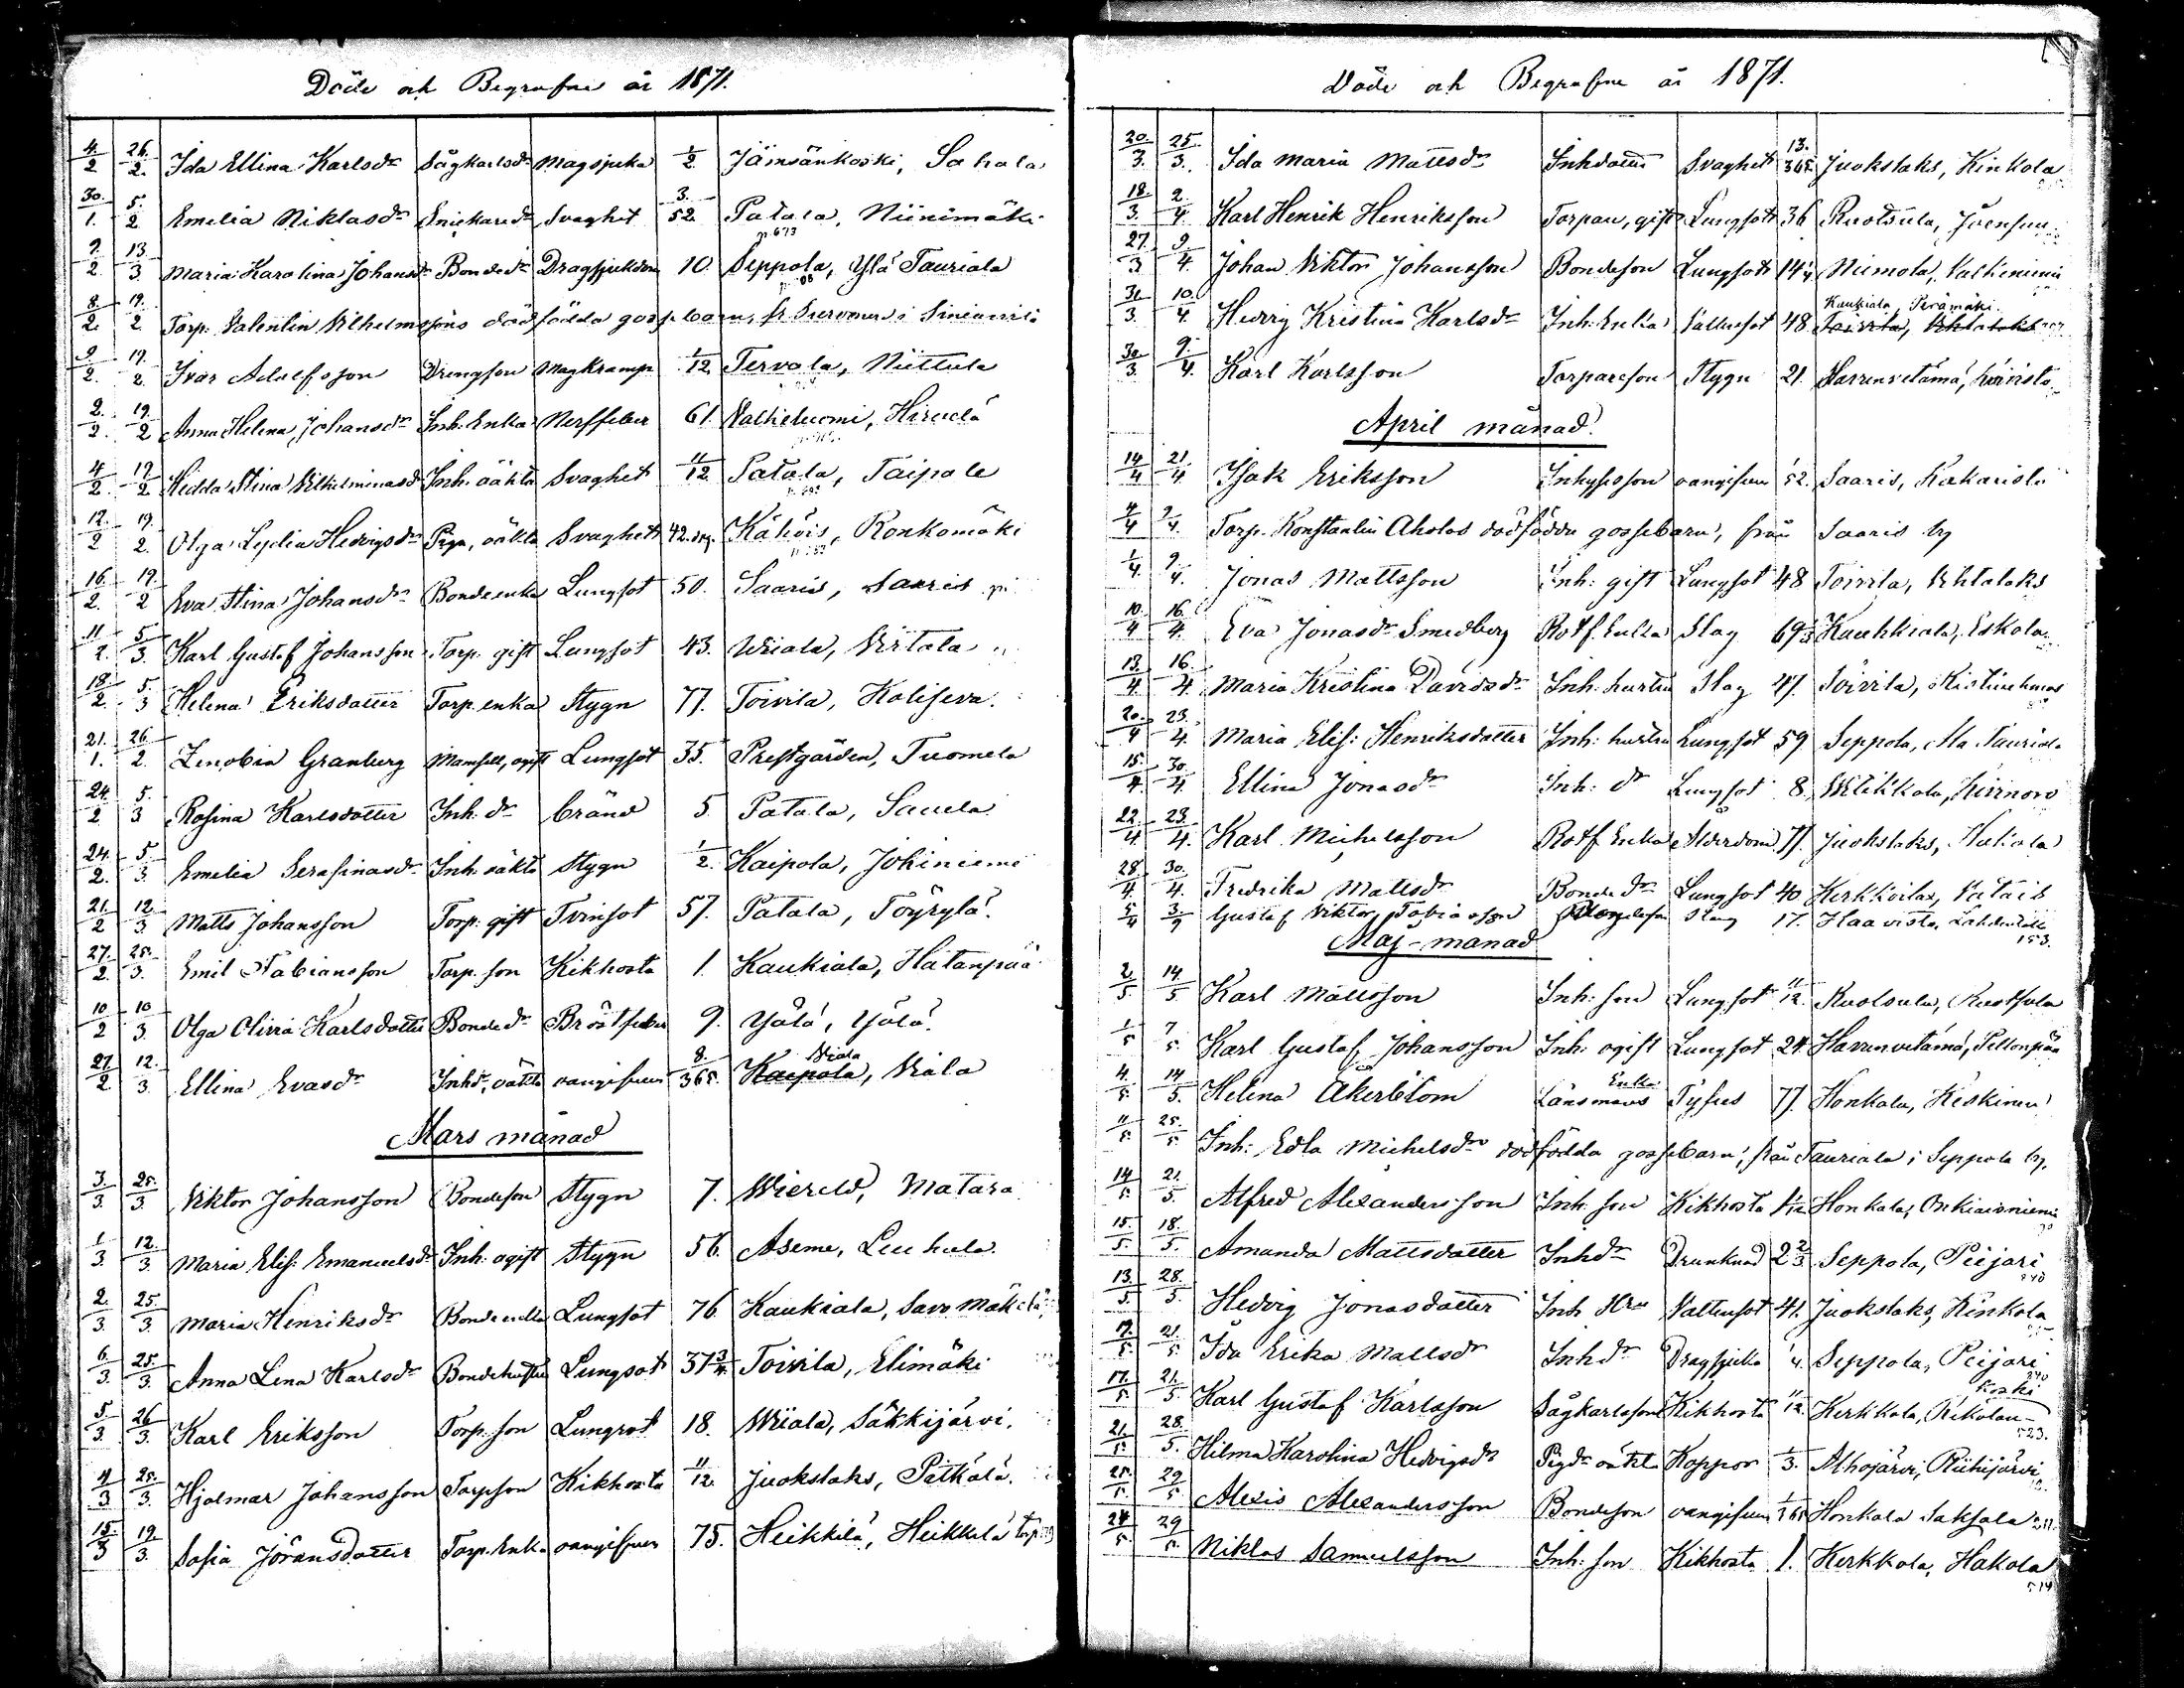 Döde och Begrafne år 1871.
4/2 26/2. Ida Ellina Karlsdr Sågkarlsdr Magsjuka 1/2. Jämsänkoski, Sahala
30/1. 5/2 Emelia Niklasdr Snickaredr Svaghet 3/52. Patala, Niinimäki
p. 673
9/2 13/3 Maria Karolina Johansdr Bondedr 10. Seppola, Ylä Tauriala
8/2. 19/2 Torp. Valentin Vilhelmssons dödfödda gossebarn, fr.
9/2. 19/2. Ivar Adolfsson Drengson Magkramp 1/12 Tervala, Niittula
2/2. 19/2 Anna Helena Johansdr Inh. Enka Nerffeber 61. Valkeluomi, Hirvelä
4/2. 19/2 Hedda Stina Vilhelminasd Inh. oäkta Svaghet 11/12 Patala, Taipale
12/2 19/2. Olga Lydia Hedvigsdr Piga, oäkta Svaghet 42. dag. Kähöis, Ronkomäki
16/2. 19/2 Eva Stina Johansdr Bondeenka Lungsot 50. Saaris, Saaris
11/2. 5/3. Karl Gustaf Johansson Torp. gift Lungsot 43. Wiiala, Virtala
18/2. 5/3 Helena Eriksdotter Torp. enka Stygn 77. Toivila, Kaliseva.
21./1. 26/2. Zenobia Granberg Mamsell, ogift Lungsot 35. Prestgården, Tuomela
24./2 5./3 Rosina Karlsdotter Inh. dr bränd 5 Patala, Saucela
24./2. 5/3. Emelia Serafinasdr Inh. oäkta Stygn 1/2. Kaipola, Jokiniemi
21./2 12./3 Matts Johansson Torp. gift Tvinsot 57. Patala, Töyrylä.
27./2. 25./3. Emil Fabiansson Torp. son Kikhosta 1. Kaukiala, Hatanpää
10/2 10/3 Olga Olivia Karlsdotter Bondedr Bröstfeber 9. Yälä, Yälä.
27/2 12./3 Ellina Evasdr Inhdr, oäkta oangifven 8./365. Kaipola, Viala
Viala
Mars månad
3./3. 25./3. Viktor Johansson Bondeson Stygn 7. Matara
1/3. 12./3. Maria Elis. Emanuelsdr Inh. ogift Stygn 56. Aseme, Leuhula
2./3. 25./3. Maria Henriksdr Bondeenka Lungsot 76 Kaukiala, Savo Mäkelä
6/3. 25./3. Anna Lena Karlsdr Bondehustru Lungsot 37 3/4 Toivila, Elimäki
5/3 26/3. Karl Eriksson Torp. son Lungsot 18. Wiiala, Säkkijärvi.
4/3 25./3. Hjalmar Johansson Torpson Kikhosta 11/12. Juokslaks, Pitkälä.
15./3 19./3. Sofia Jöransdotter Torp. Enka oangifven 75. Heikkilä, Heikkilä torp
Döde och Begrafne år 1871.
20./3. 25./3. Ida Maria Mattsdr Inhdotter Svaghet 13./365. Juokslaks, Kinkola
18./3. 2./4. Karl Henrik Henriksson Torpare, gift Lungsot 36 Ruotsula, Joensuu
27./3 9/4. Johan Viktor Johansson Bondeson Lungsot 14 1/4 Niemola, Valkeniemi
31./3. 10./4. Hedvig Kristina Karlsdr Inh. Enka Vattusot 48.
Kaukiala, Perämäki.
30./3. 9./4. Karl Karlsson Torpareson Stygn 21. Harrunvetämä, Koivisto
April månad.
14/4 21./4. Isak Eriksson Inhysesson oangifven 1/52. Saaris, Kakaristo
4/4 9/4. Torp. Konstantin Aholas dödfödda gossebarn, från Saaris by
1/4. 9/4. Jonas Mattsson Inh: gift Lungsot 48 Toivila, Uhtalaks
10./4 16./4. Eva Jonasdr Smedberg Rotf. Enka Slag 69 Kaukkiala, Eskola
13./4. 16./4. Maria Kristina Davidsdr Inh. hustru Slag 47. Toivila,
20./4 23./4. Maria Elis: Henriksdotter Inh: hustru Lungsot 59 Seppola, Ala Tauriala
15./4. 30./4. Ellina Jonasdr Inh: dr Lungsot 8.
22./4. 23./4. Karl Michelsson Rotf Enka Ålderdom 77. Juokslaks,
28./4. 30./4. Fredrika Mattsdr Bonde dr Lungsot 40 Kerkkola,
Gustaf Viktor Tobiasson Slag 17. Haavisto,
153.
Maj-månad
2./5. 14./5 Karl Mattsson Inh: son Lungsot 11/12. Ruotsula, Ruotsula
1/5 7/5. Karl Gustaf Johansson Inh: ogift Lungsot 24. Harrunvetämä, Pellonpää
4./5. 14/5. Helena Åkerblom Länsmans Enka Tyfus 77. Honkala, Keskinen
11/5. 25./5. Inh: Edla Michelsdrs dödfödda gossebarn, från Tauriala i Seppola by.
14/5. 21./5. Alfred Alexandersson Inh. son Kikhosta 1 1/12 Honkala, Onkiaisniemi
15./5. 18./5. Amanda Mattsdotter Inhdr Drunknad 2 2/3. Seppola, Peijari
240
13./5. 28./5. Hedvig Jonasdotter Inh Hru Vattusot 41. Juokslaks, Kinkola
17./5. 21./5. Ida Erika Mattsdr Inhdr Dragsjuka 1/4. Seppola, Peijari
240
17./5. 21./5. Karl Gustaf Karlsson Sågkarlsson Kikhosta 11/12. Kerkkola, Rekolan-
koski
523.
21./5. 28./5. Hilma Karolina Hedvigsdr Pigdr oäkta Koppor 1/3. Alhojärvi, Riihijärvi
25./5. 29./5. Alexis Alexandersson Bondeson oangifven 1/365 Honkala Saksala
24/5. 29/5. Niklas Samuelsson Inh: son Kikhosta 1. Kerkkola, Hakola
514